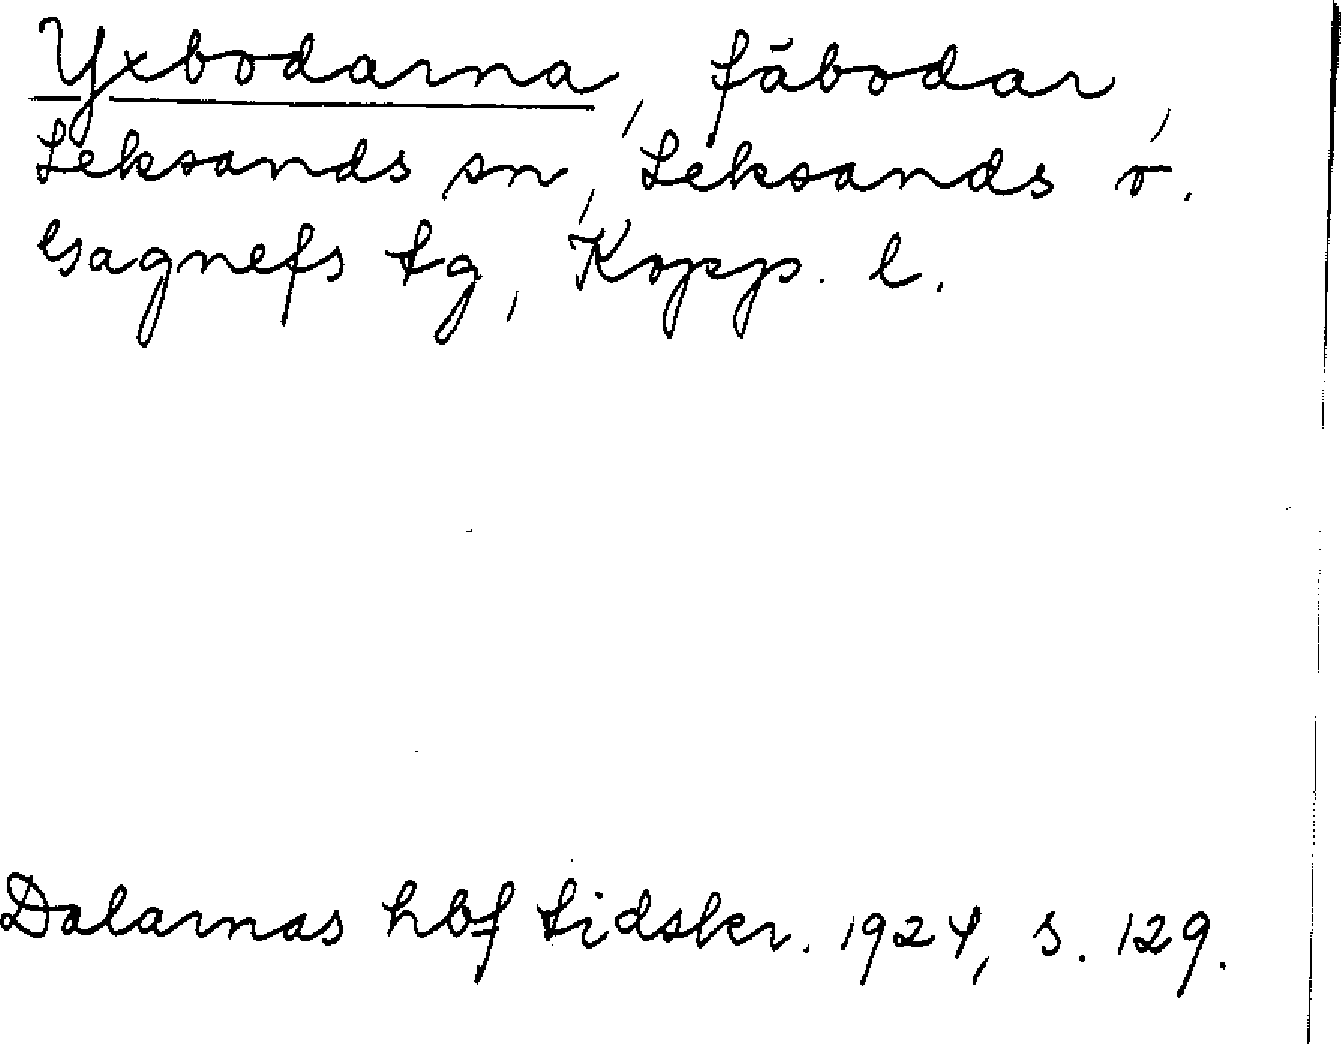 Yxbodarna, fäbodar,
Leksands sn, Leksands o.
Gagnefs tg, Kopp. l.
Dalarnas hbf tidskr. 1924, s. 129.